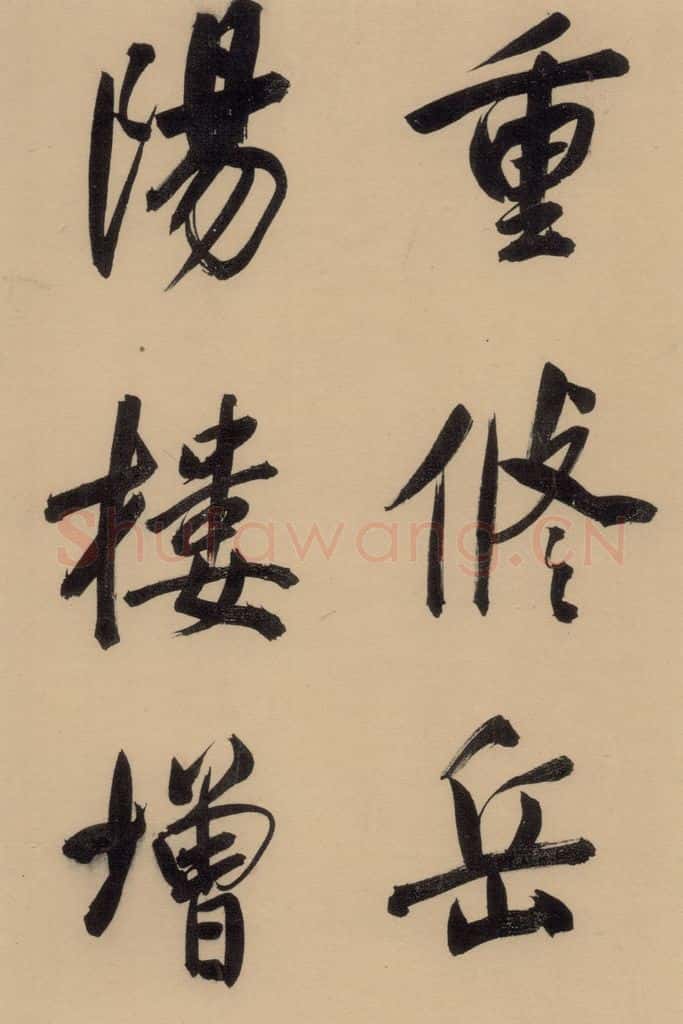 重修岳
陽樓增
Shufawang.CN